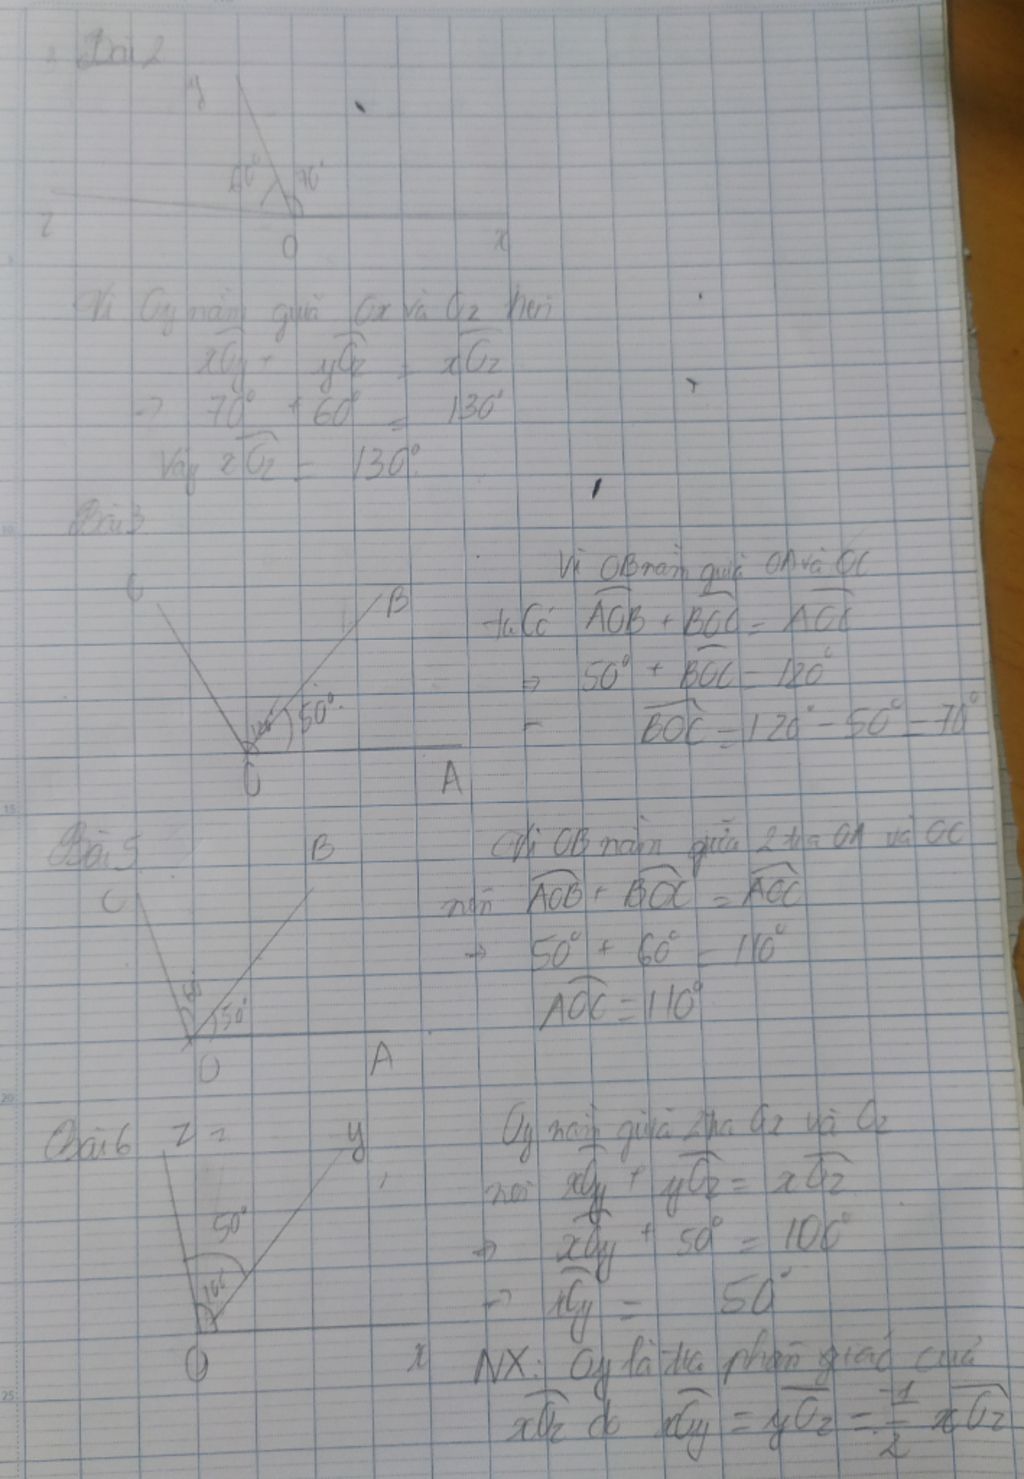 Bài 2
y
60° 70°
z O x
Vì Oy nằm giữa Ox và Oz nên
xOy + yOz = xOz
→ 70° + 60° = 130°
Vậy xOz = 130°.
Bài 3
C B
50°
O A
Vì OB nằm giữa OA và OC
ta Có AOB + BOC = AOC
⇒ 50° + BOC = 120°
BOC = 120° - 50° = 70°
Bài 5
C B
50°
O A
Vì OB nằm giữa 2 tia OA và OC
nên AOB + BOC = AOC
→ 50° + 60° = 110°
AOC = 110°
Bài 6
z y
50°
100°
O x
Oy nằm giữa 2 tia và Oz
nên xOy + yOz = xOz
→ xOy + 50° = 100°
→ xOy = 50°
NX: Oy là tia phân giác của
xOz do xOy = yOz = 1/2 xOz